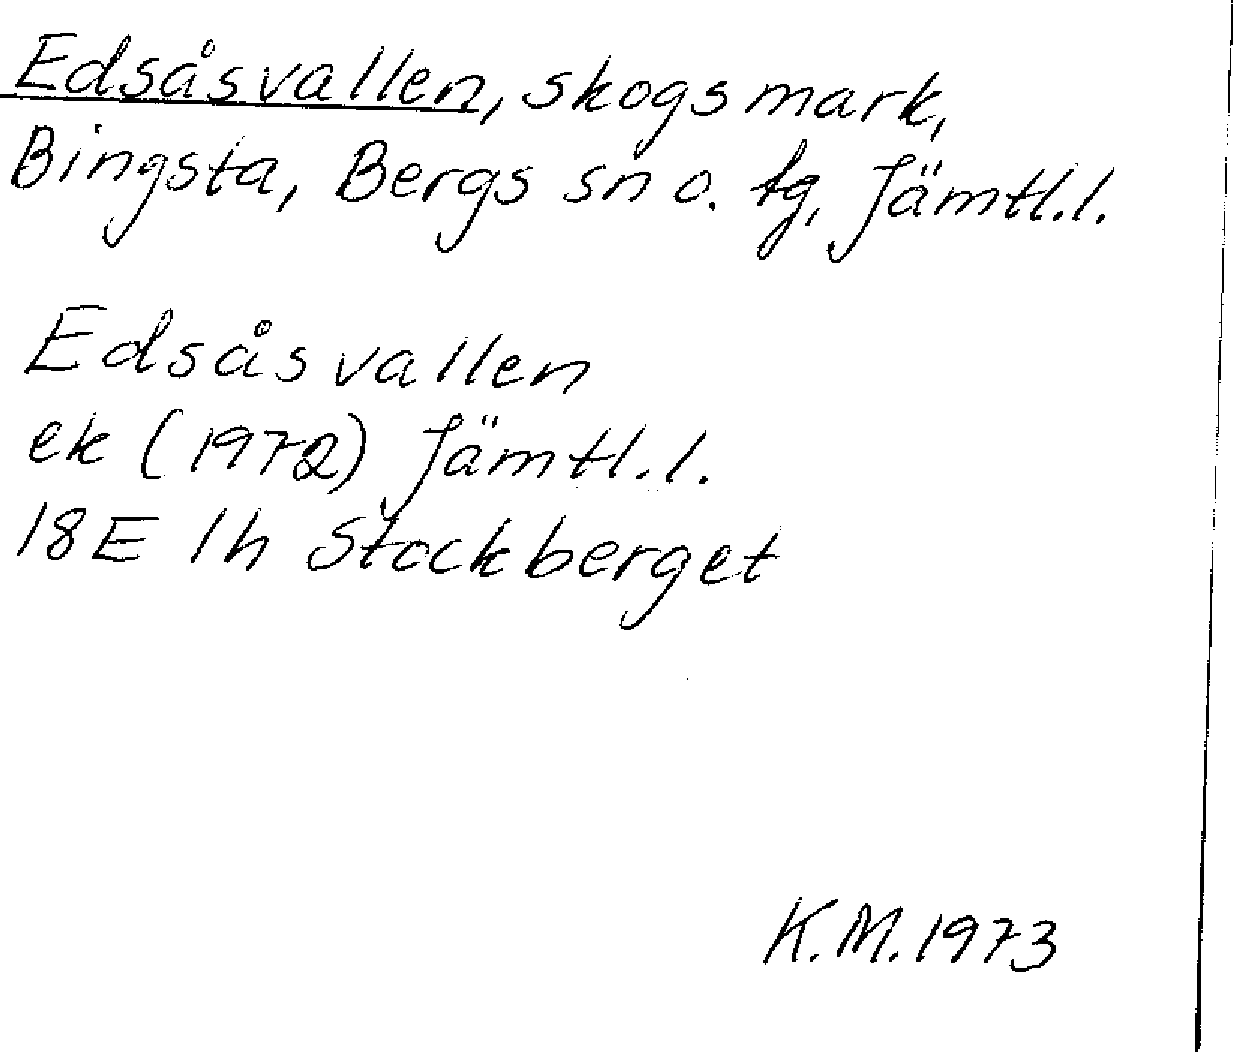 Edsåsvallen, skogsmark,
Bingsta, Bergs sn o. tg, Jämtl.l.
Edsåsvallen
ek (1972) Jämtl.l.
18E 1h Stockberget
K.M.1973